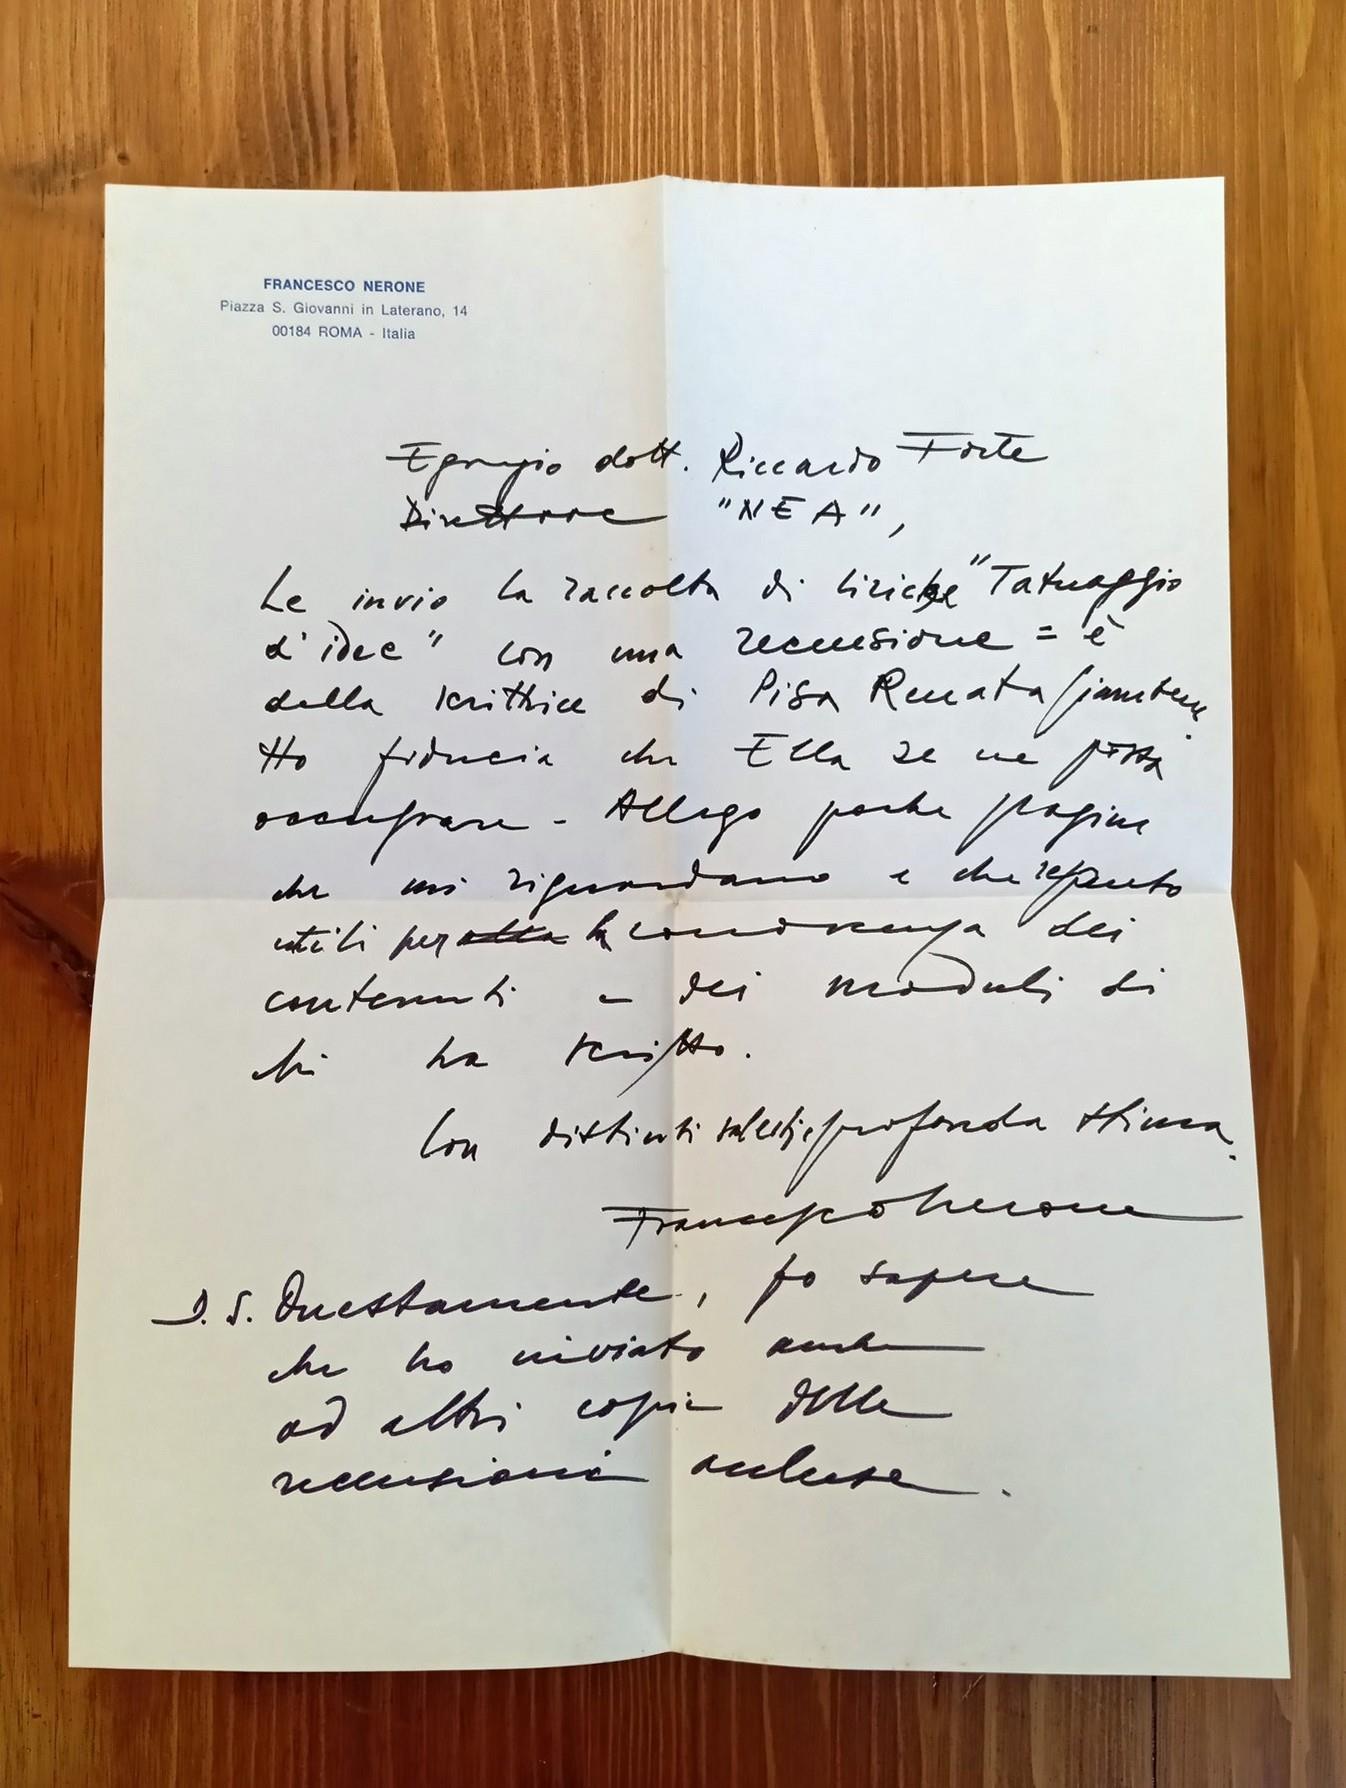 FRANCESCO NERONE
Piazza S. Giovanni in Laterano, 14
00184 ROMA - Italia
Egregio dott. Riccardo Forte
Direttore "NEA",
Le invio la raccolta di liriche "Tatuaggio
d'idee" con una recensione = è
della scrittrice di Pisa Renata
Ho fiducia che Ella se ne possa
occupare - Allego poche pagine
che mi riguardano e che reputo
utili per la conoscenza dei
contenuti e dei moduli di
chi ha scritto.
Con distinti saluti e profonda stima.
Francesco Nerone
P.S. Onestamente, fo sapere
che ho inviato anche
ad altri copie delle
recensioni accluse.